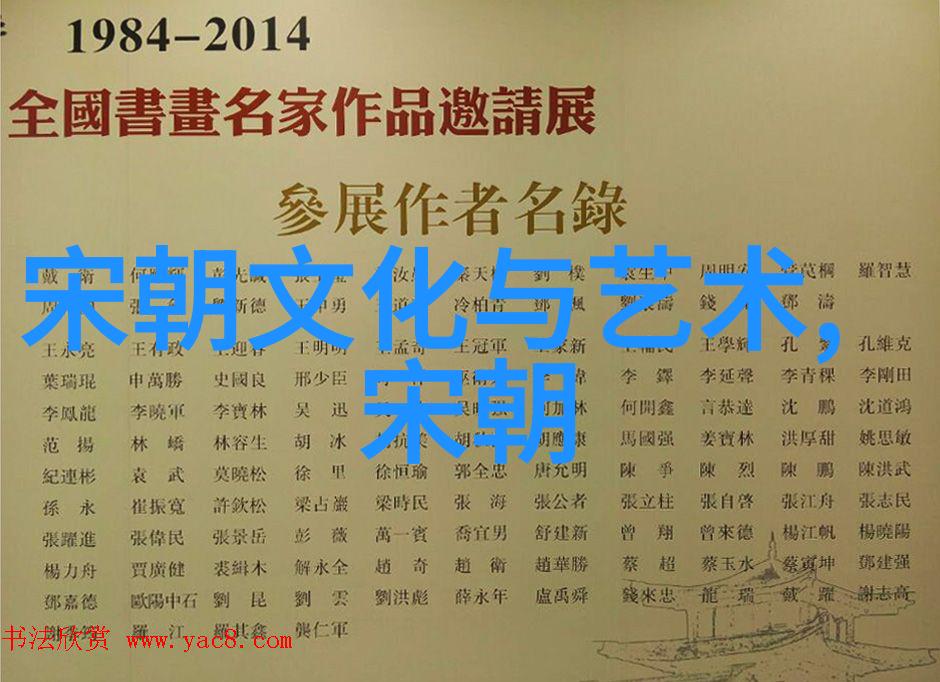 1984-2014
全國書畫名家作品邀請展
參展作者名錄
宋朝文化与艺术,
宋朝
戴 衛 羅智慧
周 劉新德 冷柏青 鄧 濤
王永亮 王有政 王迎春 王明明 王孟奇 王冠軍 王家新 王學輝 孔 孔維克
葉瑞琨 申萬勝 史國良 邢少臣 李 鐸 李延聲 李青稞 李剛田
李鳳龍 李曉軍 李寶林 吳 迅 何開鑫 言恭達 沈 鵬 沈道鴻
范 揚 林 嶠 林容生 胡 冰 馬國强 姜寶林 洪厚甜 姚思敏
紀連彬 袁 武 莫曉松 徐 里 徐恒瑜 郭全忠 唐允明 陳 爭 陳 烈 陳 鵬 陳洪武
孫 永 崔振寬 許欽松 梁占巖 梁時民 張 海 張公者 張立柱 張自啓 張江舟 張志民
張躍進 張偉民 張景岳 彭 薇 萬一賓 喬宜男 舒建新 曾 翔 曾來德 楊江帆 楊曉陽
楊力舟 賈廣健 裘緝木 解永全 趙 奇 趙 衛 趙華勝 蔡 超 蔡玉水 蔡寅坤 鄧建强
鄧嘉德 歐陽中石 劉 昆 劉 雲 劉洪彪 薛永年 盧禹舜 錢來忠 龍 瑞 戴 躍 謝志高
羅 江 羅其鑫 龔仁軍
书法欣赏 www.yac8.com